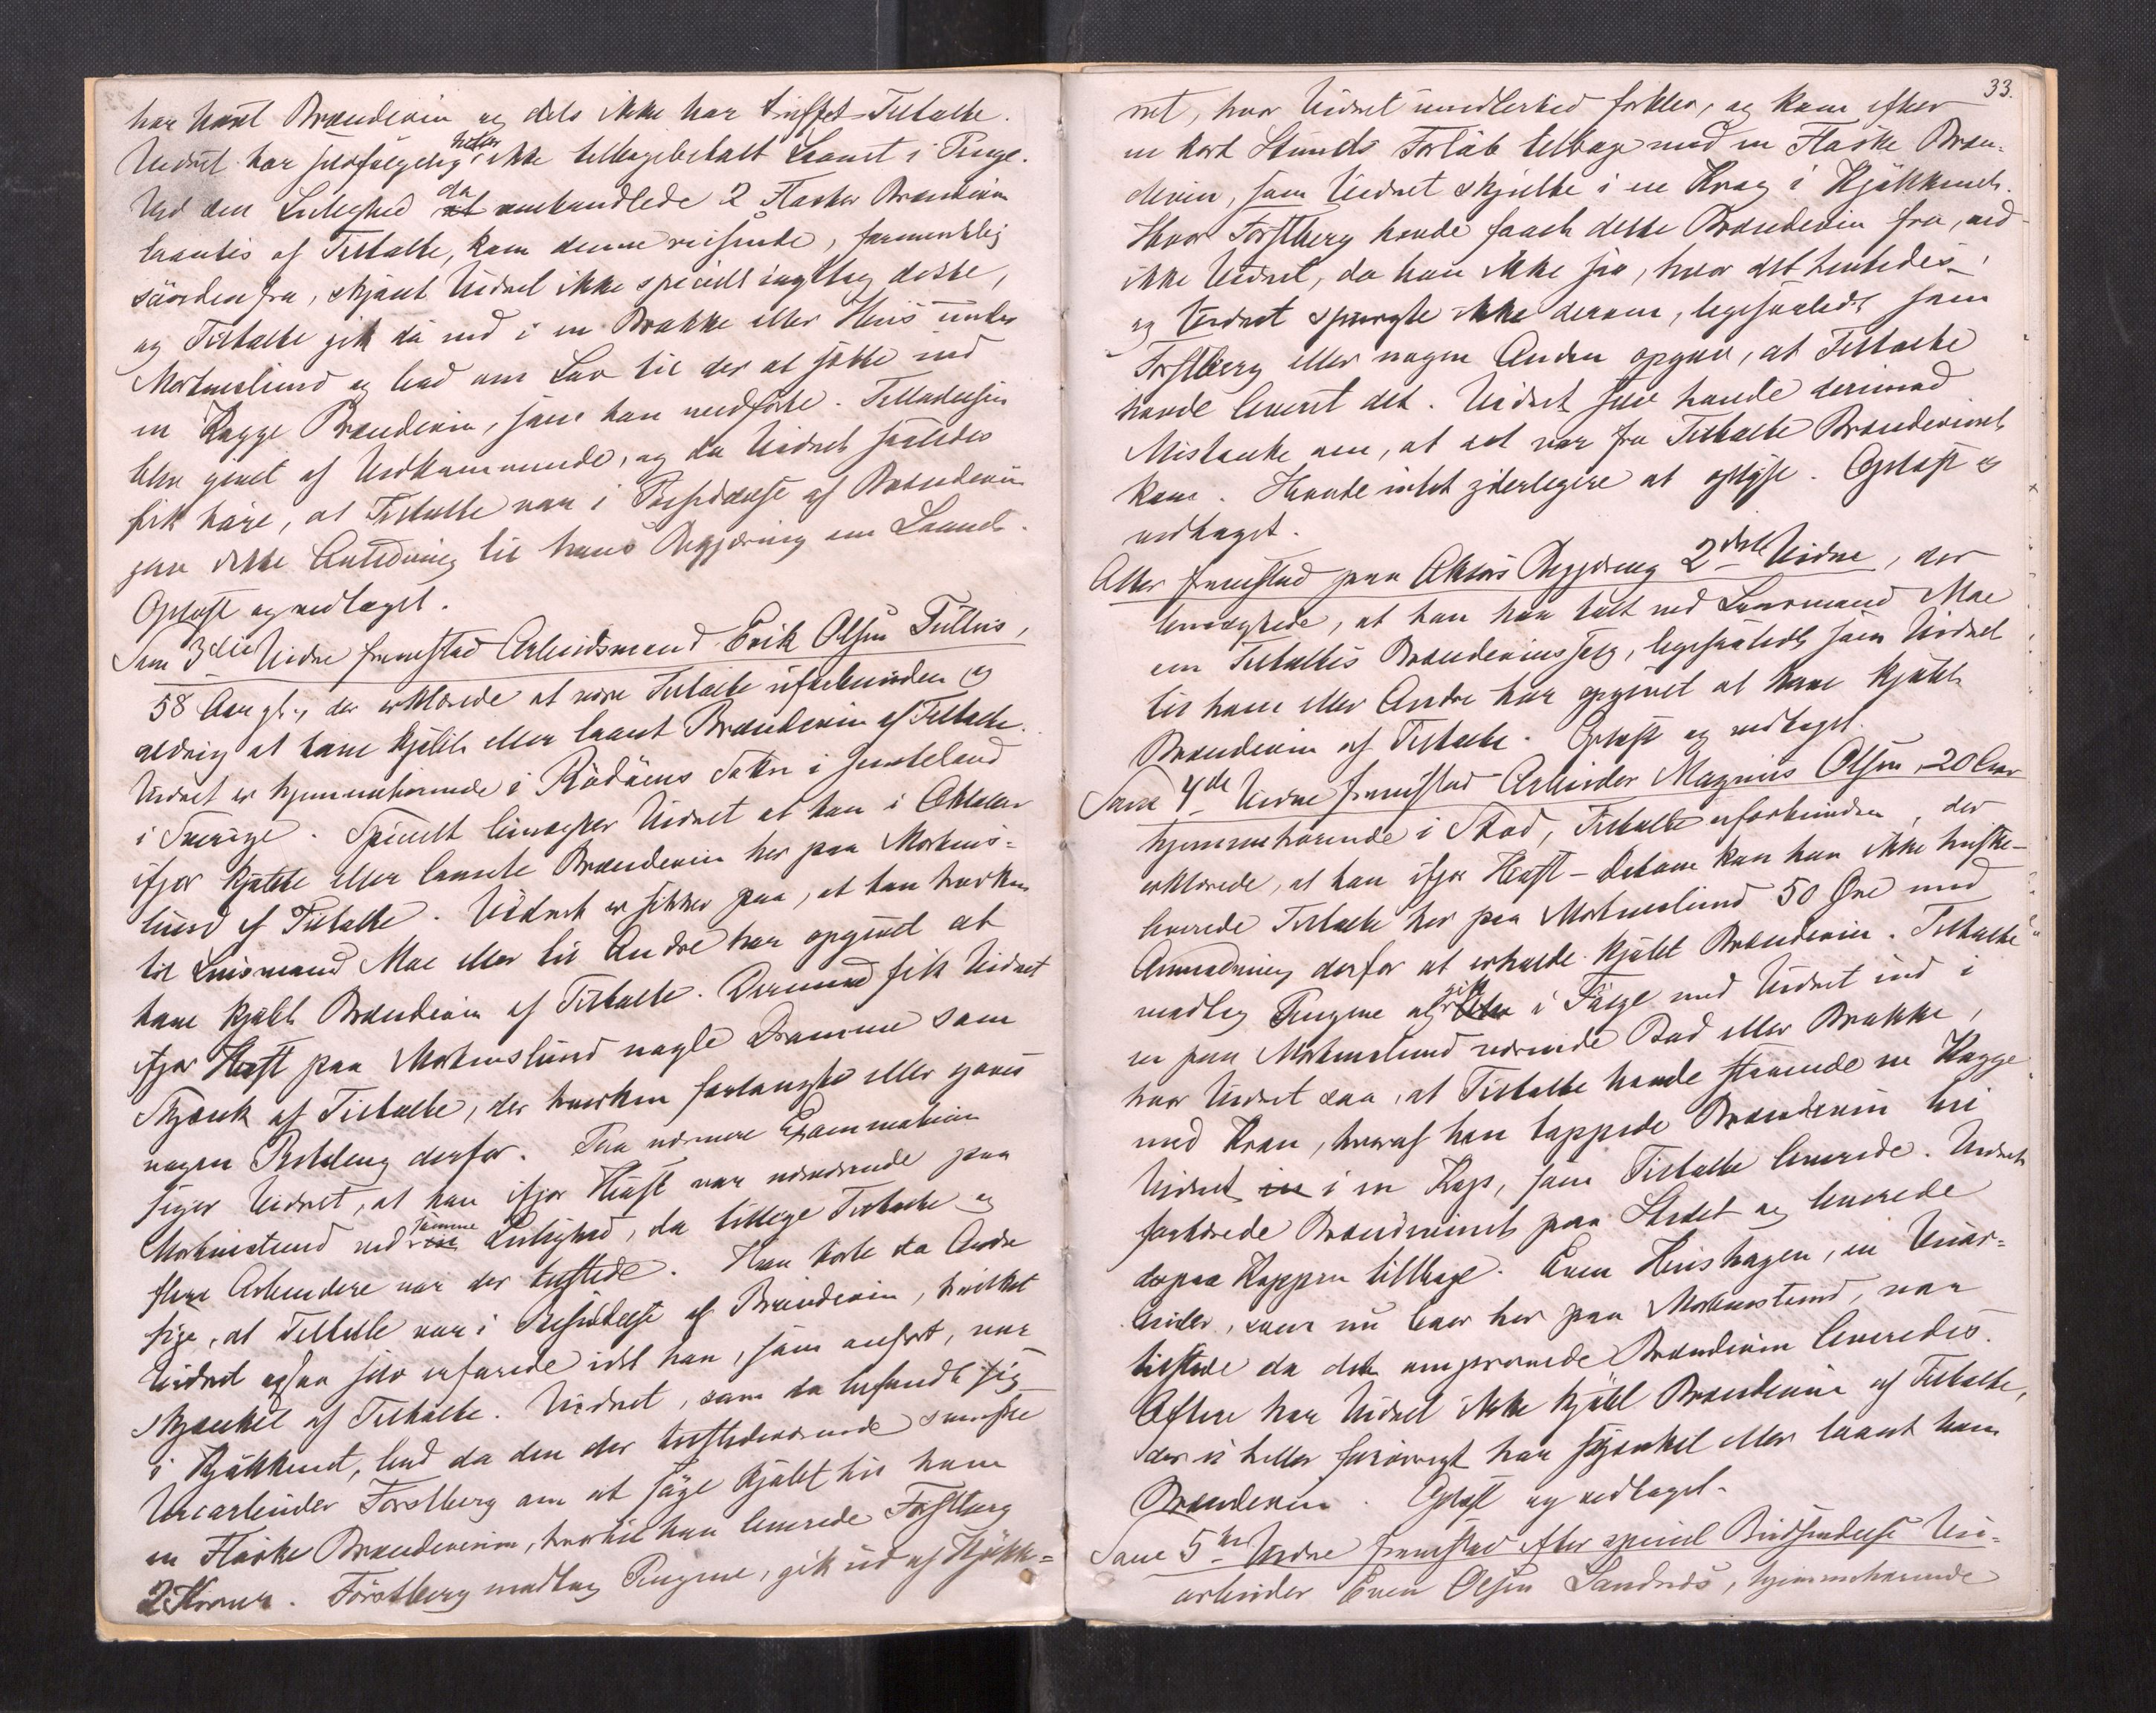 har havt Brændevin og dels ikke har truffet Tiltalte.
Vidnet har selvfølgelig heller ikke tilbagebetalt Laanet i Penge.
Ved den Leilighed da at omhandlede 2 Flasker Brændevin
laantes af Tiltalte, kom denne reisende, formentlig
søndenfra, skjønt Vidnet ikke specielt iagttog dette,
og Tiltalte gik da ned i en Brakke eller Hus under
Mortenslund og bad om Lov til der at sætte ind
en Kagge Brændevin, som han medførte. Tilladelsen
blev givet af Vedkommende, og da Vidnet saaledes
fik høre, at Tiltalte var i Besiddelse af Brændevin
gav dette Anledning til hans Begjæring om Laanet.
Oplæst og vedtaget.
Som 3die Vidne fremstod Arbeidsmand Erik Olsen Tullus,
58 Aar gl., der erklærede at være Tiltalte uforbunden og
aldrig at have kjøbt eller laant Brændevin af Tiltalte.
Vidnet er hjemmehørende i Rødøens Sokn i Jemteland
i Sverige. Specielt benægter Vidnet at han i Oktober
ifjor kjøbte eller laante Brændevin her paa Mortens-
lund af Tiltalte. Vidnet er sikker paa, at han hverken
til Lensmand Moe eller til Andre har opgivet at
have kjøbt Brændevin af Tiltalte. Derimod fik Vidnet
ifjor Høst paa Mortenslund nogle Dramme som
Skjænk af Tiltalte, der hverken forlangte eller gaves
nogen Betaling derfor. Paa nærmere Examination
siger Vidnet, at han ifjor Høst var nærværende paa
Mortenslund ved samme Leilighed, da tillige Tiltalte og
flere Arbeidere var der tilstede. Han hørte da Andre
sige, at Tiltalte var i Besiddelse af Brændevin, hvilket
Vidnet ogsaa selv erfarede idet han, som anført, var
skjænket af Tiltalte. Vidnet, som da befandt sig
i Kjøkkenet, bad da den der tilstedeværende svenske
Veiarbeider Forstberg om at søge kjøbt til ham
en Flaske Brændevin, hvortil han leverede Forstberg
2 Kroner. Forstberg modtog Pengene, gik ud af Kjøkk-
33.
net, hvor Vidnet imidlertid forblev, og kom efter
en kort Stunds Forløb tilbage med en Flaske Bræn-
devin, som Vidnet skjulte i en Krog i Kjøkkenet.
Hvor Forstberg havde faaet dette Brændevin fra, ved
ikke Vidnet, da han ikke saa, hvor det hentedes,
og Vidnet spurgte ikke derom, ligesaalidt som
Forstberg eller nogen Anden opgav, at Tiltalte
havde leveret det. Vidnet selv havde derimod
Mistanke om, at det var fra Tiltalte Brændevinet
kom. Havde intet yderligere at oplyse. Oplæst og
vedtaget.
Atter fremstod paa Aktors Begjæring 2det Vidne, der
benægtede, at han har talt med Lensmand Moe
om Tiltaltes Brændevinssalg, ligesaalidt som Vidnet
til ham eller Andre har opgivet at have kjøbt
Brændevin af Tiltalte. Oplæst og vedtaget.
Som 4de Vidne fremstod Arbeider Magnus Olsen, 20 Aar
hjemmehørende i Stod, Tiltalte uforbunden, der
erklærede, at han ifjor Høst – Datoen kan han ikke huske –
leverede Tiltalte her paa Mortenslund 50 Øre med
Anmodning derfor at erholde kjøbt Brændevin. Tiltalte
modtog Pengene og gik i Følge med Vidnet ind i
en paa Mortenslund værende Bod eller Brakke,
hvor Vidnet saa, at Tiltalte havde staaende en Kagge
med Kran, hvoraf han tappede Brændevin til
Vidnet i en Kop, som Tiltalte leverede. Vidnet
fortærede Brændevinet paa Stedet og leverede
derpaa Koppen tilbage. Even Heishagen, en Veiar-
beider, som nu bor her paa Mortenslund, var
tilstede da det omprovede Brændevin leveredes.
Oftere har Vidnet ikke kjøbt Brændevin af Tiltalte,
der ei heller forøvrigt har skjænket eller laant ham
Brændevin. Oplæst og vedtaget.
Som 5te Vidne fremstod efter speciel Budsendelse Vei-
arbeider Even Olsen Sandnes, hjemmehørende